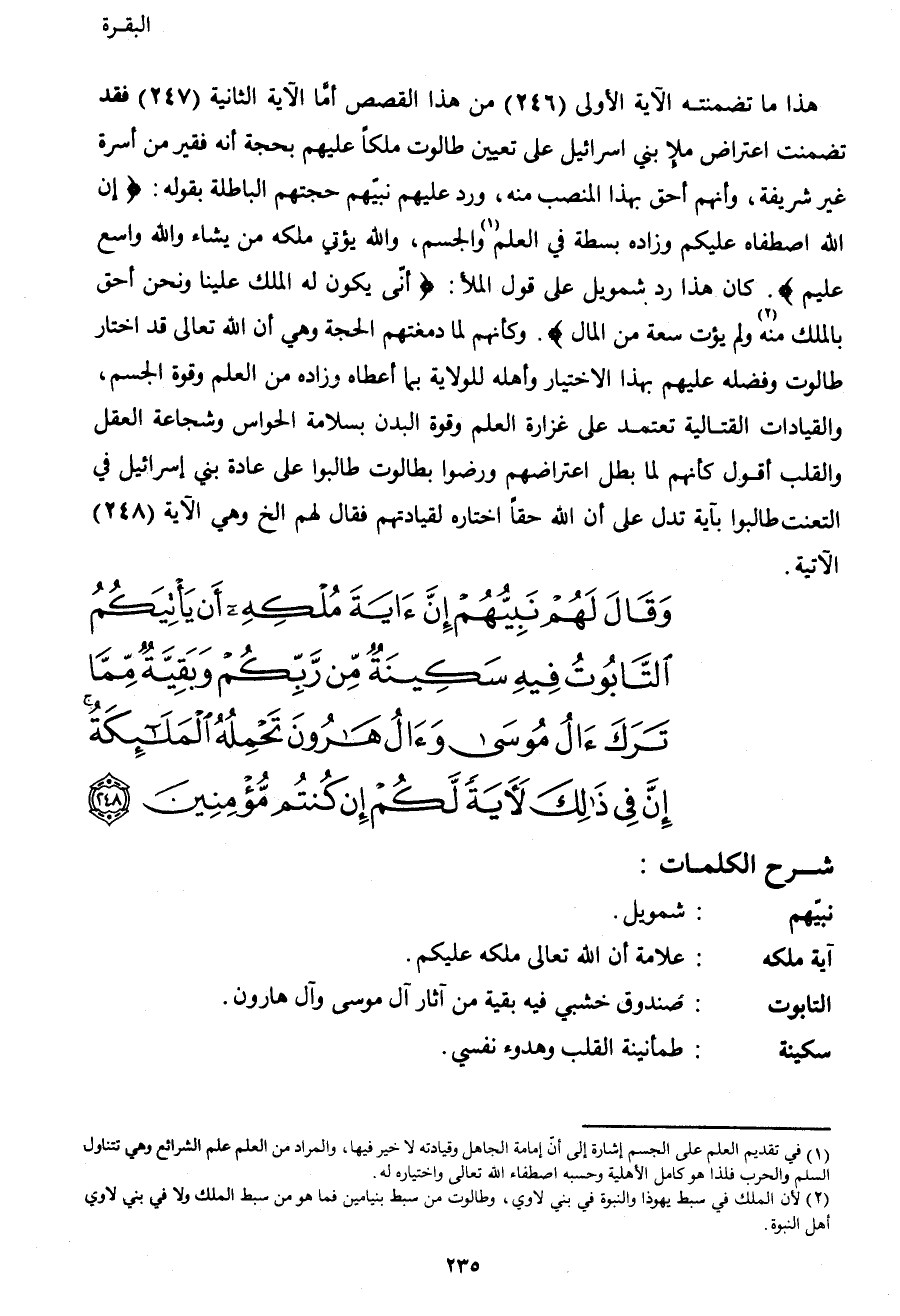 البقـرة
هذا ما تضمنتـه الآية الأولى (٢٤٦) من هذا القصص أمَّا الآية الثانية (٢٤٧) فقد
تضمنت اعتراض ملإ بني اسرائيل على تعيين طالوت ملكاً عليهم بحجة أنه فقير من أسرة
غير شريفة، وأنهم أحق بهذا المنصب منه، ورد عليهم نبيّهم حجتهم الباطلة بقوله: ﴿ إن
الله اصطفاه عليكم وزاده بسطة في العلم(١) والجسم، والله يؤتي ملكه من يشاء والله واسع
عليم ﴾. كان هذا رد شمويل على قول الملأ: ﴿ أنّى يكون له الملك علينا ونحن أحق
بالملك منه(٢) ولم يؤت سعة من المال ﴾. وكأنهم لما دمغتهم الحجة وهي أن الله تعالى قد اختار
طالوت وفضله عليهم بهذا الاختيار وأهله للولاية بما أعطاه وزاده من العلم وقوة الجسم،
والقيادات القتـالية تعتمـد على غزارة العلم وقوة البدن بسلامة الحواس وشجاعة العقل
والقلب أقـول كأنهم لما بطل اعتراضهم ورضوا بطالوت طالبوا على عادة بني إسرائيل في
التعنت طالبوا بآية تدل على أن الله حقاً اختاره لقيادتهم فقال لهم الخ وهي الآية (٢٤٨)
الآتية.
وَقَالَ لَهُمْ نَبِيُّهُمْ إِنَّ ءَايَةَ مُلْكِهِۦٓ أَن يَأْتِيَكُمُ
ٱلتَّابُوتُ فِيهِ سَكِينَةٌ مِّن رَّبِّكُمْ وَبَقِيَّةٌ مِّمَّا
تَرَكَ ءَالُ مُوسَىٰ وَءَالُ هَـٰرُونَ تَحْمِلُهُ ٱلْمَلَـٰٓئِكَةُ ۚ
إِنَّ فِى ذَٰلِكَ لَـَٔايَةً لَّكُمْ إِن كُنتُم مُّؤْمِنِينَ ٢٤٨
شـرح الكلمـات :
نبيّهم : شمويل.
آية ملكه : علامة أن الله تعالى ملكه عليكم.
التابوت : صندوق خشبي فيه بقية من آثار آل موسى وآل هارون.
سكينة : طمأنينة القلب وهدوء نفسي.
(١) في تقديم العلم على الجسم إشارة إلى أنّ إمامة الجاهل وقيادته لا خير فيها، والمراد من العلم علم الشرائع وهي تتناول
السلم والحرب فلذا هو كامل الأهلية وحسبه اصطفاء الله تعالى واختياره له.
(٢) لأن الملك في سبط يهوذا والنبوة في بني لاوي، وطالوت من سبط بنيامين فما هو من سبط الملك ولا في بني لاوي
أهل النبوة.
٢٣٥